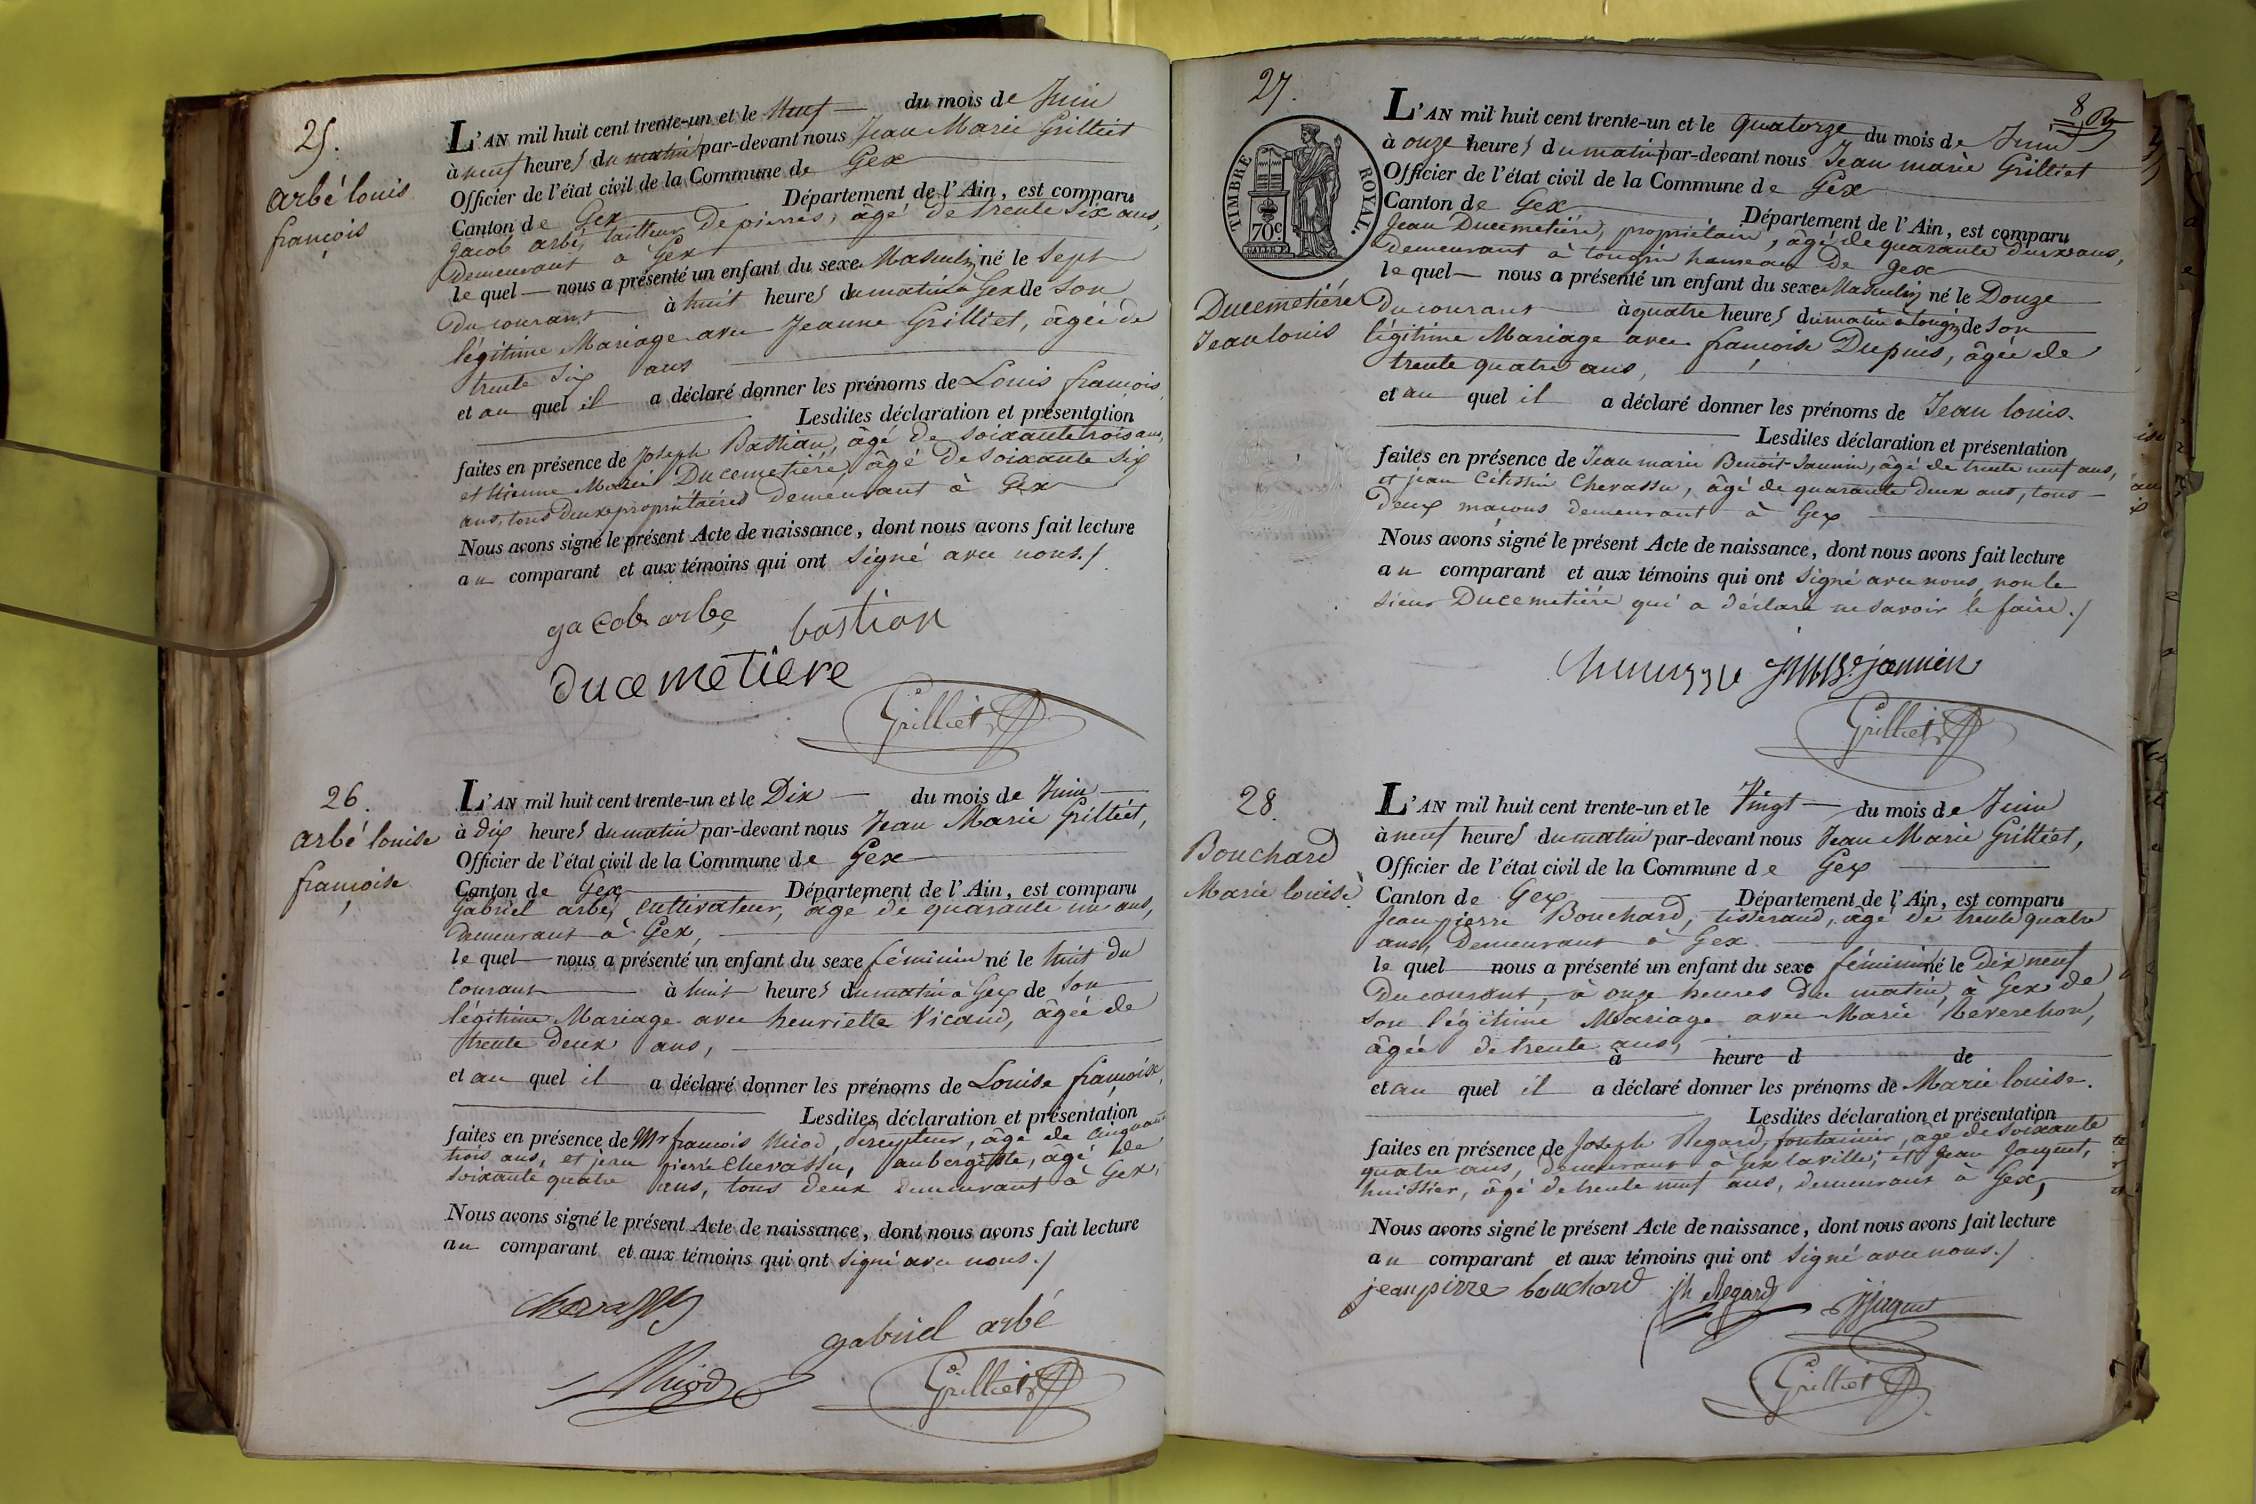 25.
arbé louis
françois
L'AN mil huit cent trente-un et le Neuf du mois de Juin
à neuf heures du matin par-devant nous Jean Marie Grilliet
Officier de l'état civil de la Commune de Gex
Canton de Gex Département de l'Ain, est comparu
Jacob arbé, tailleur De pierres, âgé de trente Six ans,
Demeurant à Gex
le quel nous a présenté un enfant du sexe Masculin né le Sept
Du courant à huit heures du matin à Gex de Son
légitime Mariage avec Jeanne Grilliet, âgée de
trente Six ans
et au quel il a déclaré donner les prénoms de Louis françois,
Lesdites déclaration et présentation
faites en présence de Joseph Bastian, âgé de soixante trois ans,
et Etienne Marie Ducemetiére, âgé de Soixante Six
ans, tous Deux propriétaires demeurant à Gex
Nous avons signé le présent Acte de naissance, dont nous avons fait lecture
au comparant et aux témoins qui ont Signé avec nous./
gacob arbe bastian
ducemetiere
Grilliet
26.
arbé louise
françoise
L'AN mil huit cent trente-un et le Dix du mois de Juin
à dix heures du matin par-devant nous Jean Marie Grilliet,
Officier de l'état civil de la Commune de Gex
Canton de Gex Département de l'Ain, est comparu
Gabriel arbé, cultivateur, âgé de quarante un ans,
Demeurant à Gex,
le quel nous a présenté un enfant du sexe féminin né le huit du
Courant à huit heures du matin à Gex de Son
légitime Mariage avec henriette Vicaud, âgée de
trente Deux ans,
et au quel il a déclaré donner les prénoms de Louise françoise,
Lesdites déclaration et présentation
faites en présence de Mr françois Nicod, percepteur, âgé de cinquante
trois ans, et jean pierre Chevassu, aubergiste, agé de
soixante quatre ans, tous deux demeurant à Gex,
Nous avons signé le présent Acte de naissance, dont nous avons fait lecture
au comparant et aux témoins qui ont Signé avec nous./
Chevassu
gabriel arbé
Nicod
Grilliet
27.
8
TIMBRE ROYAL.
70c
Ducemetiére
Jean louis
L'AN mil huit cent trente-un et le quatorze du mois de Juin
à onze heures du matin par-devant nous Jean marie Grilliet
Officier de l'état civil de la Commune de Gex
Canton de Gex Département de l'Ain, est comparu
Jean Ducemetiére, propriétaire, âgé de quarante Deux ans,
Demeurant à tougin hameau De Gex
le quel nous a présenté un enfant du sexe Masculin né le Douze
Du courant à quatre heures du matin à tougin de Son
légitime Mariage avec françoise Dupuis, âgée de
trente quatre ans,
et au quel il a déclaré donner les prénoms de Jean louis.
Lesdites déclaration et présentation
faites en présence de Jean marie Benoit-Jannin, âgé de trente neuf ans,
et jean Célestin Chevassu, âgé de quarante deux ans, tous
Deux maçons demeurant à Gex
Nous avons signé le présent Acte de naissance, dont nous avons fait lecture
au comparant et aux témoins qui ont Signé avec nous, non le
Sieur Ducemetiére qui a déclaré ne Savoir le faire./
jannin
Grilliet
28.
Bouchard
Marie louise
L'AN mil huit cent trente-un et le Vingt du mois de Juin
à neuf heures du matin par-devant nous Jean Marie Grilliet,
Officier de l'état civil de la Commune de Gex
Canton de Gex Département de l'Ain, est comparu
Jean pierre Bouchard, tisserand, âgé de trente quatre
ans, Demeurant à Gex
le quel nous a présenté un enfant du sexe féminin né le Dix neuf
Du courant, à onze heures du matin, à Gex de
Son légitime Mariage avec Marie Reverchon,
âgée de trente ans,
à heure d de
et au quel il a déclaré donner les prénoms de Marie louise.
Lesdites déclaration et présentation
faites en présence de Joseph Regard, fontainier, âgé de soixante
quatre ans, demeurant à Gex la ville; et Jean Jacquet,
huissier, âgé de trente neuf ans, demeurant à Gex,
Nous avons signé le présent Acte de naissance, dont nous avons fait lecture
au comparant et aux témoins qui ont Signé avec nous./
jean pirre bouchard jh Regard jjaquet
Grilliet